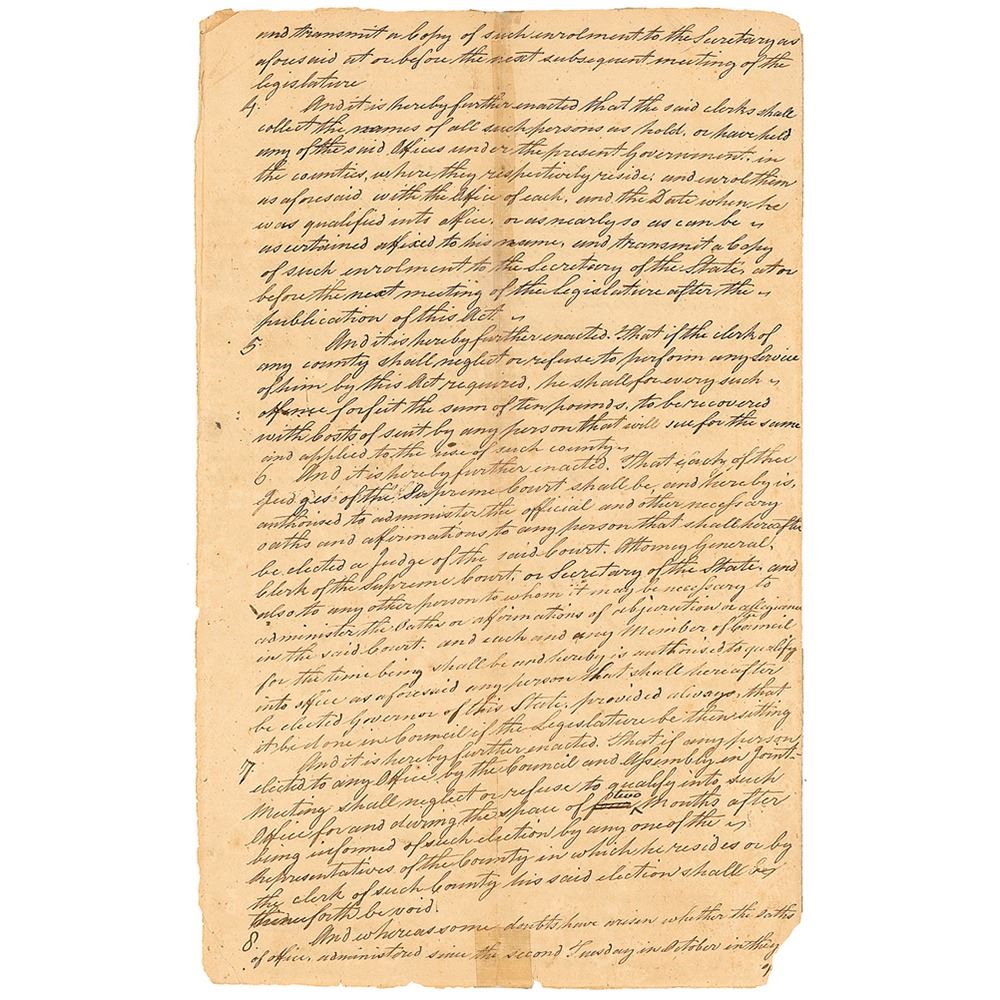 and transmit a Copy of such enrolment to the Secretary as
aforesaid at or before the next subsequent meeting of the
legislature
4. And it is hereby further enacted that the said clerks shall
collect the names of all such persons as hold, or have held
any of the said Offices under the present Government, in
the counties, where they respectively reside; and enrol them
as aforesaid with the Office of each, and the Date when he
was qualified into office, or as nearly so as can be
ascertained affixed to his name, and transmit a Copy
of such enrolment to the Secretary of the State, at or
before the next meeting of the legislature after the
publication of this Act.
5. And it is hereby further enacted. That if the clerk of
any county shall neglect or refuse to perform any Service
of him by this Act required, he shall for every such
offence forfeit the sum of ten pounds, to be recovered
with Costs of suit by any person that will sue for the same
and applied to the use of such county
6. And it is hereby further enacted. That each of the
Judges of the Supreme Court shall be, and hereby is,
authorised to administer the official and other necessary
oaths and affirmations to any person that shall hereafter
be elected a Judge of the said Court, Attorney General,
Clerk of the Supreme Court, or Secretary of the State, and
also to any other person to whom it may be necessary to
administer the Oaths or affirmations of abjuration or allegiance
in the said Court. and each and any Member of Council
for the time being shall be and hereby is authorised to qualify
into office as aforesaid any person that shall hereafter
be elected Governor of this State, provided always, that
it be done in Council if the Legislature be then sitting
7. And it is hereby further enacted. That if any person
elected to any Office by the Council and Assembly in Joint-
Meeting shall neglect or refuse to qualify into such
Office for and during the space of two Months after
being informed of such election by any one of the
Representatives of the County in which he resides or by
the clerk of such County his said election shall be
thenceforth be void.
8. And whereas some doubts have arisen whether the Oaths
of office, administered since the second Tuesday in October in the